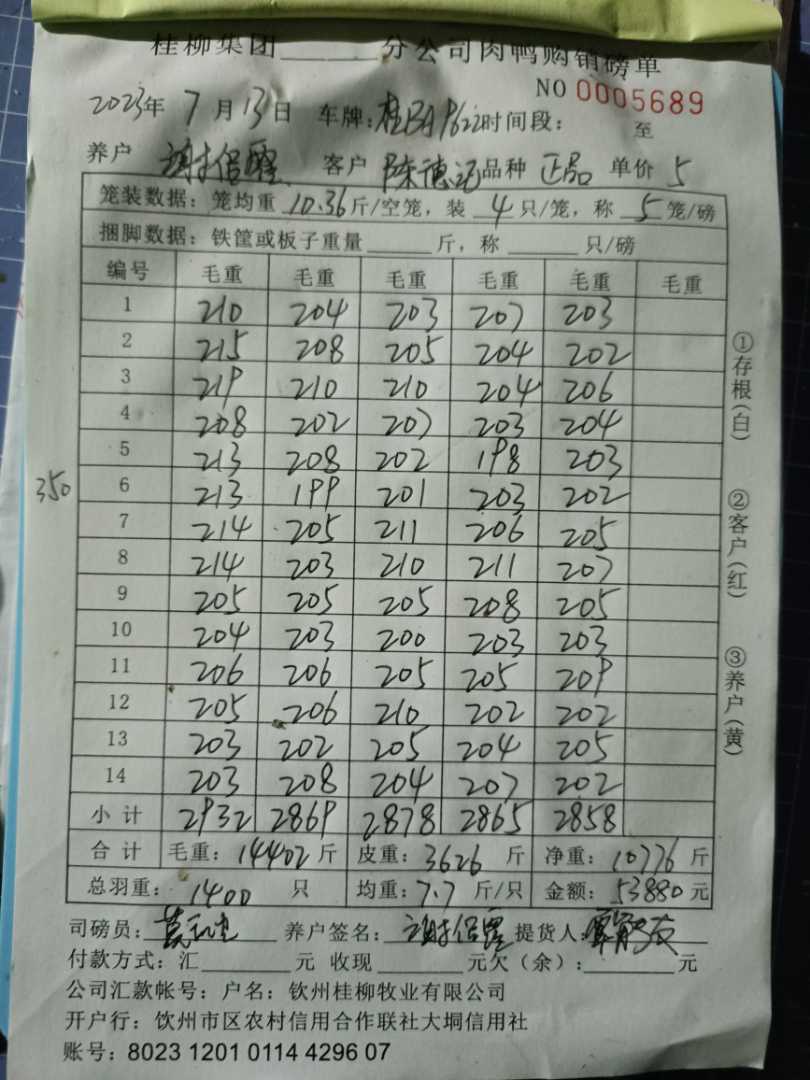 桂柳集团______分公司肉鸭购销磅单
NO 0005689
2023年 7月13日 车牌:桂BAP622 时间段: 至
养户 谢侣醒 客户 陈德记 品种 正品 单价 5
笼装数据:笼均重 10.36 斤/空笼,装 4 只/笼,称 5 笼/磅
捆脚数据:铁筐或板子重量______斤,称______只/磅
编号 毛重 毛重 毛重 毛重 毛重 毛重
1 210 204 203 207 203
2 215 208 205 204 202
3 219 210 210 204 206
4 208 202 207 203 204
5 213 208 202 198 203
350
6 213 199 201 203 202
7 214 205 211 206 205
8 214 203 210 211 207
9 205 205 205 208 205
10 204 203 200 203 203
11 206 206 205 205 209
12 205 206 210 202 202
13 203 202 205 204 205
14 203 208 204 207 202
小计 2932 2869 2878 2865 2858
合计 毛重:14402斤 皮重:3626斤 净重:10776斤
总羽重:1400 只 均重:7.7斤/只 金额:53880元
司磅员: 养户签名:谢侣醒 提货人:
付款方式:汇______元 收现______元欠(余):______元
公司汇款帐号:户名:钦州桂柳牧业有限公司
开户行:钦州市区农村信用合作联社大垌信用社
账号:8023 1201 0114 4296 07
①存根(白)
②客户(红)
③养户(黄)